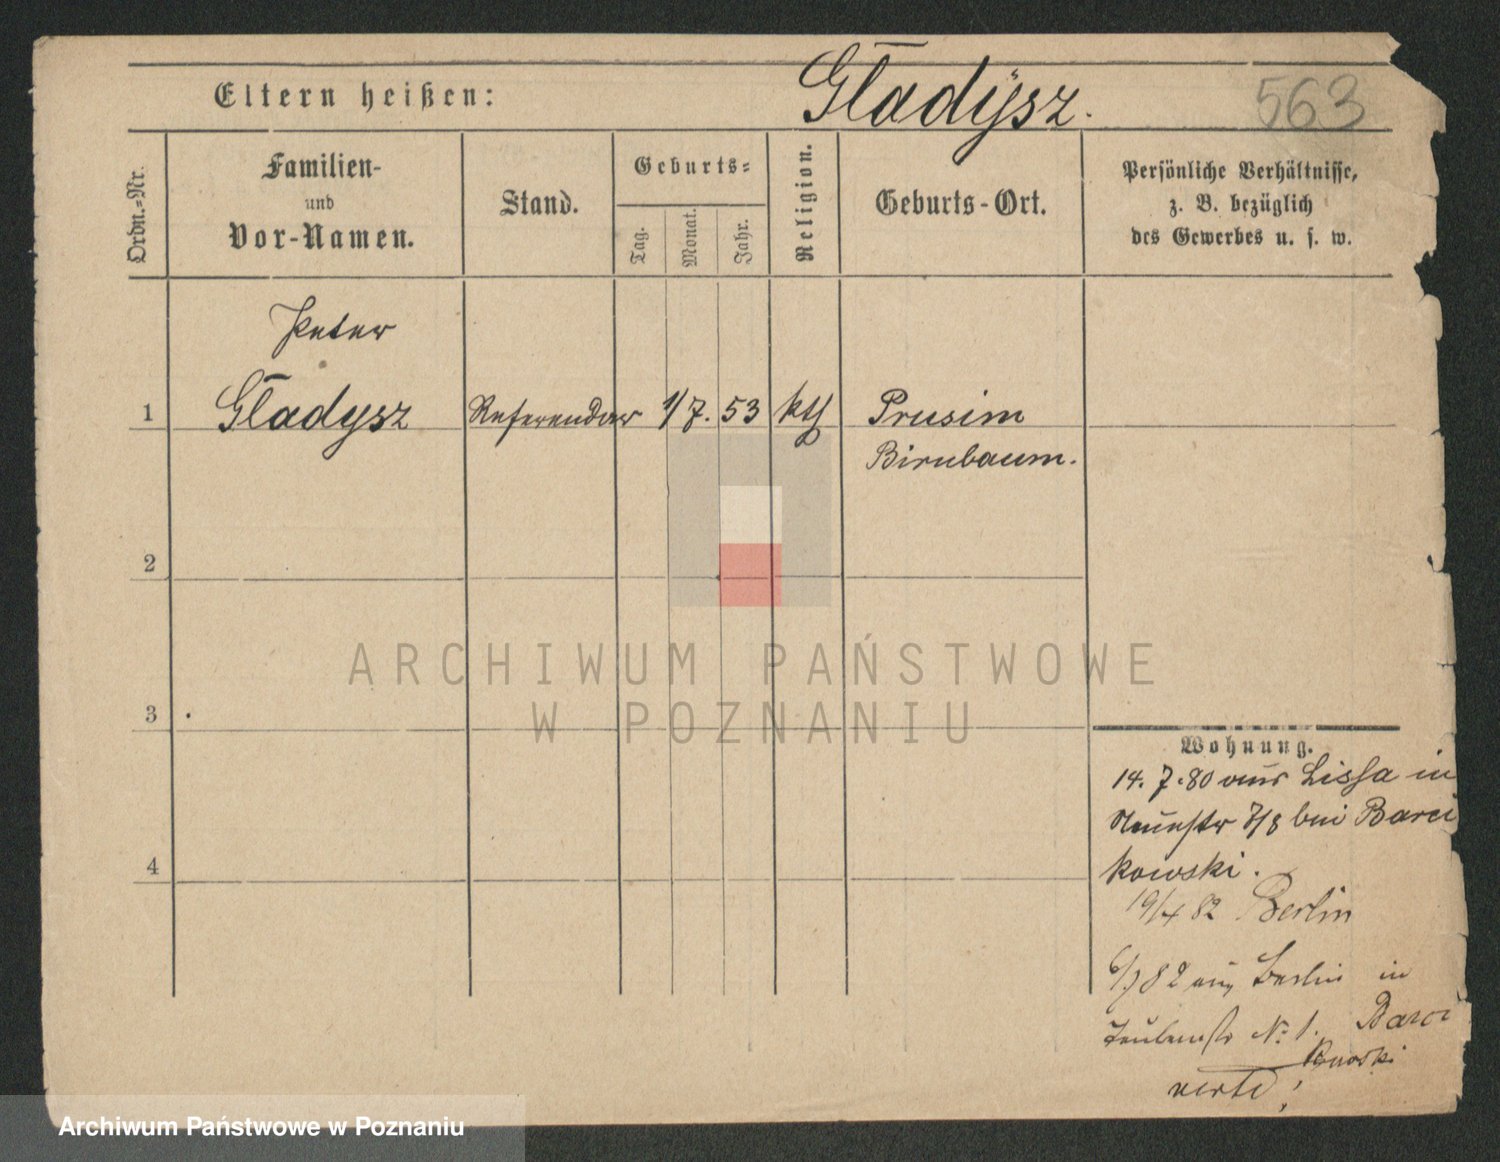 Eltern heißen: Gladysz. 563
Ordn.-Nr.
Familien-
und
Vor-Namen.
Stand.
Geburts-
Tag.
Monat.
Jahr.
Religion.
Geburts-Ort.
Persönliche Verhältnisse,
z. B. bezüglich
des Gewerbes u. s. w.
Peter
1 Gladysz Referendar 1/7. 53 kth Prusim
Birnbaum.
2
3
4
ARCHIWUM PAŃSTWOWE
W POZNANIU
Wohnung.
14. 7. 80 aus Lissa in
Neuestr 7/8 bei Barci
kowski.
19/4 82 Berlin
6/7 82 aus Berlin in
Taubenstr No 1. Barci
kowski
verte!
Archiwum Państwowe w Poznaniu